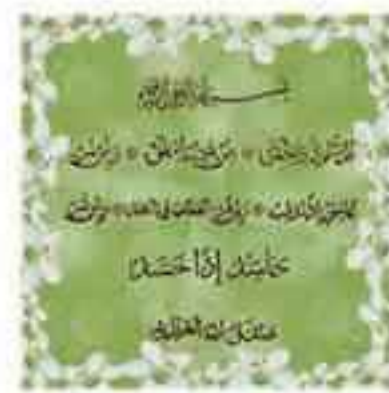 بسم الله الرحمن الرحيم
قل أعوذ برب الفلق * من شر ما خلق * ومن شر
غاسق إذا وقب * ومن شر النفاثات في العقد * ومن شر
حاسد إذا حسد
صدق الله العظيم